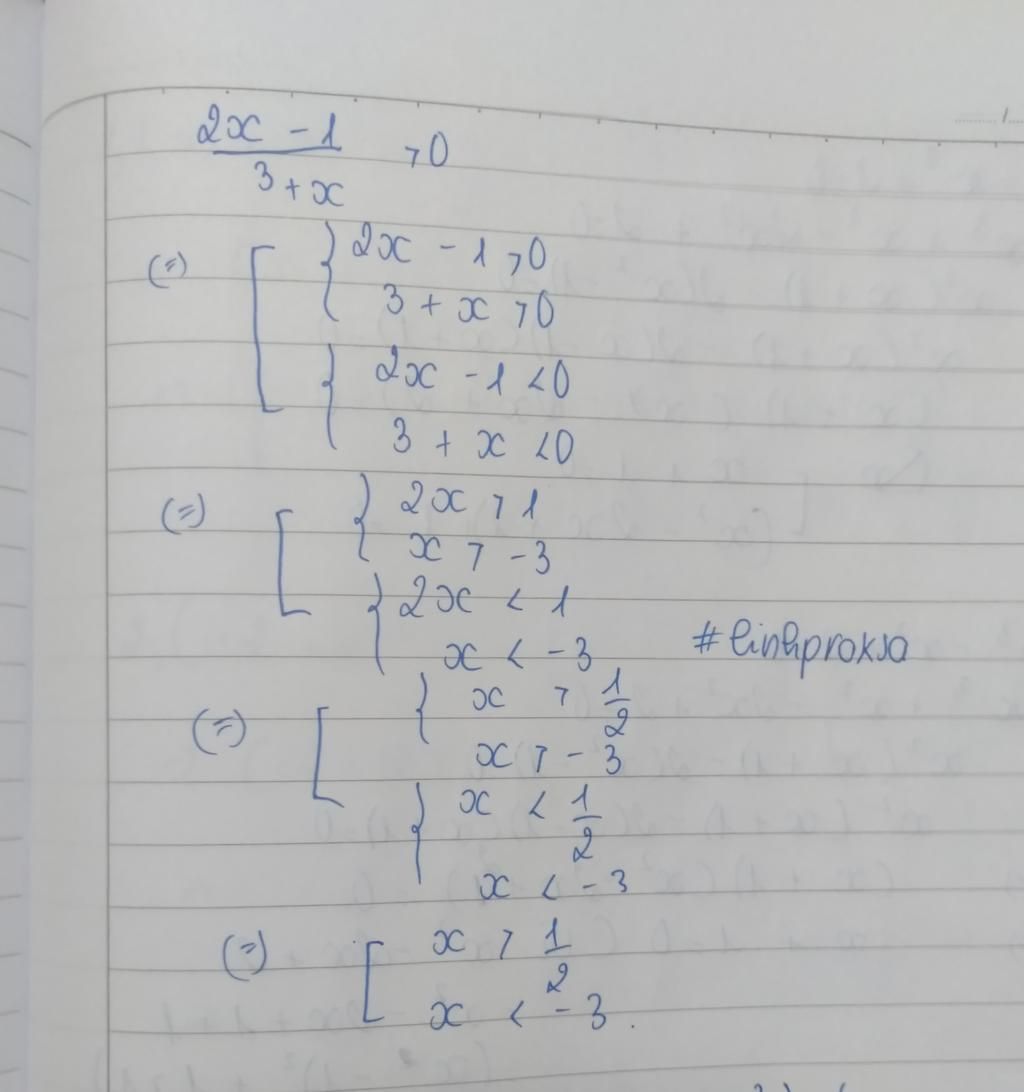 2x - 1 / 3 + x > 0
(=) [ { 2x - 1 > 0
3 + x > 0
{ 2x - 1 < 0
3 + x < 0
(=) [ { 2x > 1
x > -3
{ 2x < 1
x < -3
#linhproksa
(=) [ { x > 1/2
x > -3
{ x < 1/2
x < -3
(=) [ x > 1/2
x < -3.